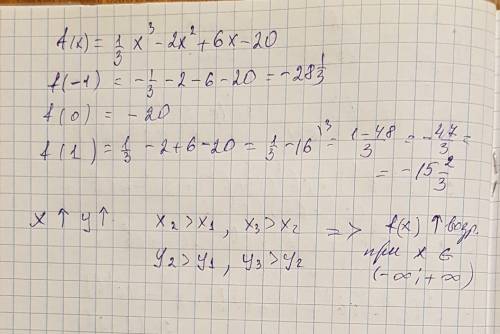 f(x) = 1/3 x³ - 2x² + 6x - 20
f(-1) = -1/3 - 2 - 6 - 20 = -28 1/3
f(0) = -20
f(1) = 1/3 - 2 + 6 - 20 = 1/3 - 16 ⁾³ = (1-48)/3 = -47/3 =
= -15 2/3
x ↑ y ↑ x₂ > x₁, x₃ > x₂ => f(x) ↑ возр.
y₂ > y₁, y₃ > y₂ при x ∈
(-∞; +∞)